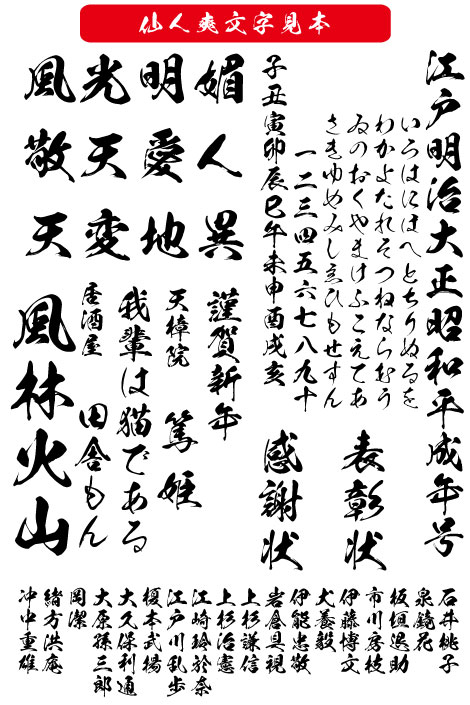 仙人爽文字見本
江戸明治大正昭和平成年号
いろはにほへとちりぬるを
わかよたれそつねならむう
ゐのおくやまけふこえてあ
さきゆめみしゑひもせすん
一二三四五六七八九十
子丑寅卯辰巳午未申酉戌亥
表彰状
感謝状
風光明媚
敬天愛人
天変地異
謹賀新年
天樟院 篤姫
我輩は猫である
居酒屋 田舎もん
風林火山
石井桃子
泉鏡花
板垣退助
市川房枝
伊藤博文
犬養毅
伊能忠敬
岩倉具視
上杉謙信
上杉治憲
江崎玲於奈
江戸川乱歩
榎本武揚
大久保利通
大原孫三郎
岡潔
緒方洪庵
沖中重雄